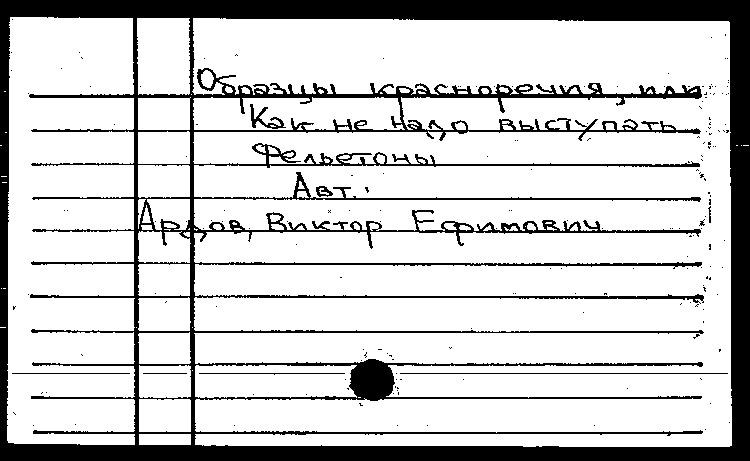 Образцы красноречия, или
Как не надо выступать
Фельетоны
Авт.:
Ардов, Виктор Ефимович